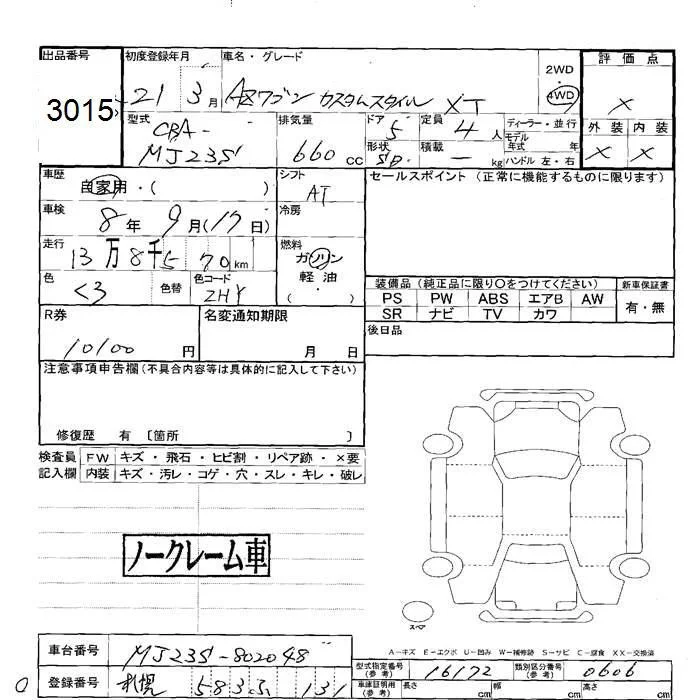 出品番号 初度登録年月 車名・グレード 2WD 評価点
3015 21 3月 AZワゴン カスタムスタイル XT 4WD ×
型式 CBA- 排気量 ドア 5 定員 4人 ディーラー・並行 外装 内装
モデル年式 年
MJ23S 660cc 形状 5D 積載 ー kg ハンドル 左・右 × ×
車歴 自家用・( ) シフト AT セールスポイント (正常に機能するものに限ります)
車検 8年9月(17日) 冷房
走行 13万8千570km 燃料 ガソリン
軽油
( )
色 色替 色コード ZHY
装備品 (純正品に限り○をつけてください) 新車保証書
PS PW ABS エアB AW 有・無
SR ナビ TV カワ
R券 10100円 名変通知期限 月 日 後日品
注意事項申告欄 (不具合内容等は具体的に記入して下さい)
修復歴 有 〔箇所 〕
検査員 FW キズ・飛石・ヒビ割・リペア跡・×要
記入欄 内装 キズ・汚レ・コゲ・穴・スレ・キレ・破レ
ノークレーム車
スペア
A-キズ E-エクボ U-凹み W-補修跡 S-サビ C-腐食 XX-交換済
車台番号 MJ23S-802048
型式指定番号(参考) 16172 類別区分番号(参考) 0606
登録番号 札幌 583 131
車庫証明用(参考) 長さ cm 幅 cm 高さ cm